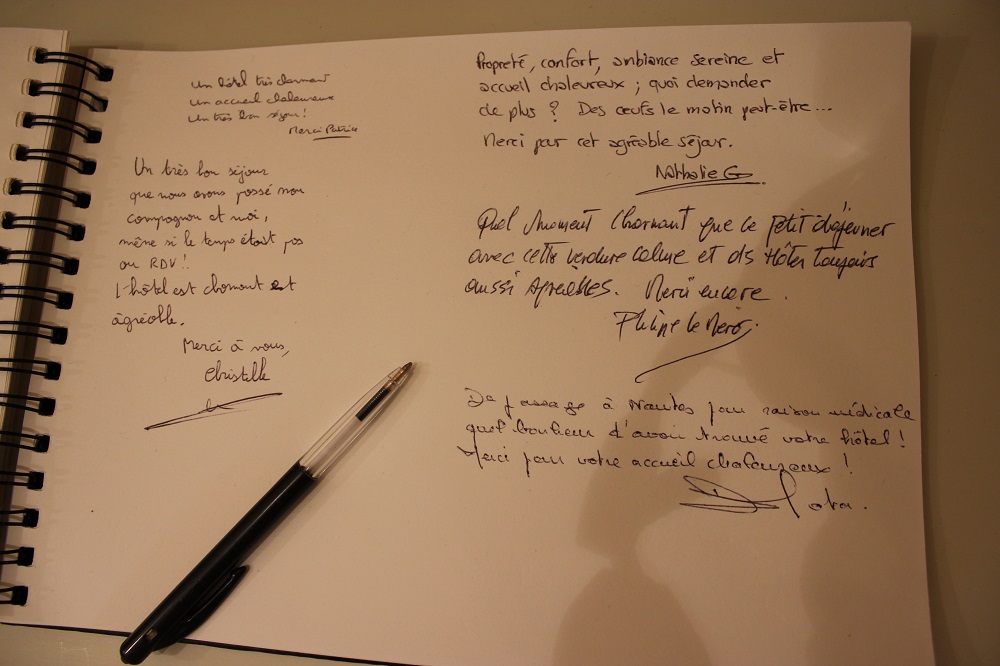 Un hôtel très charmant
un accueil chaleureux
Un très bon séjour!
Merci Patrice
Un très bon séjour
que nous avons passé mon
compagnon et moi,
même si le temps était pas
au RDV!!
l'hôtel est charmant et
agréable.
Merci à vous,
Christelle
Propreté, confort, ambiance sereine et
accueil chaleureux ; quoi demander
de plus ? Des œufs le matin peut-être...
Merci par cet agréable séjour.
Nathalie G
Quel moment charmant que ce petit déjeuner
avec cette verdure calme et ds Hôtes toujours
aussi agréables. Merci encore.
De passage à Nantes pour raison médicale
quel bonheur d'avoir trouvé votre hôtel !
Merci pour votre accueil chaleureux !